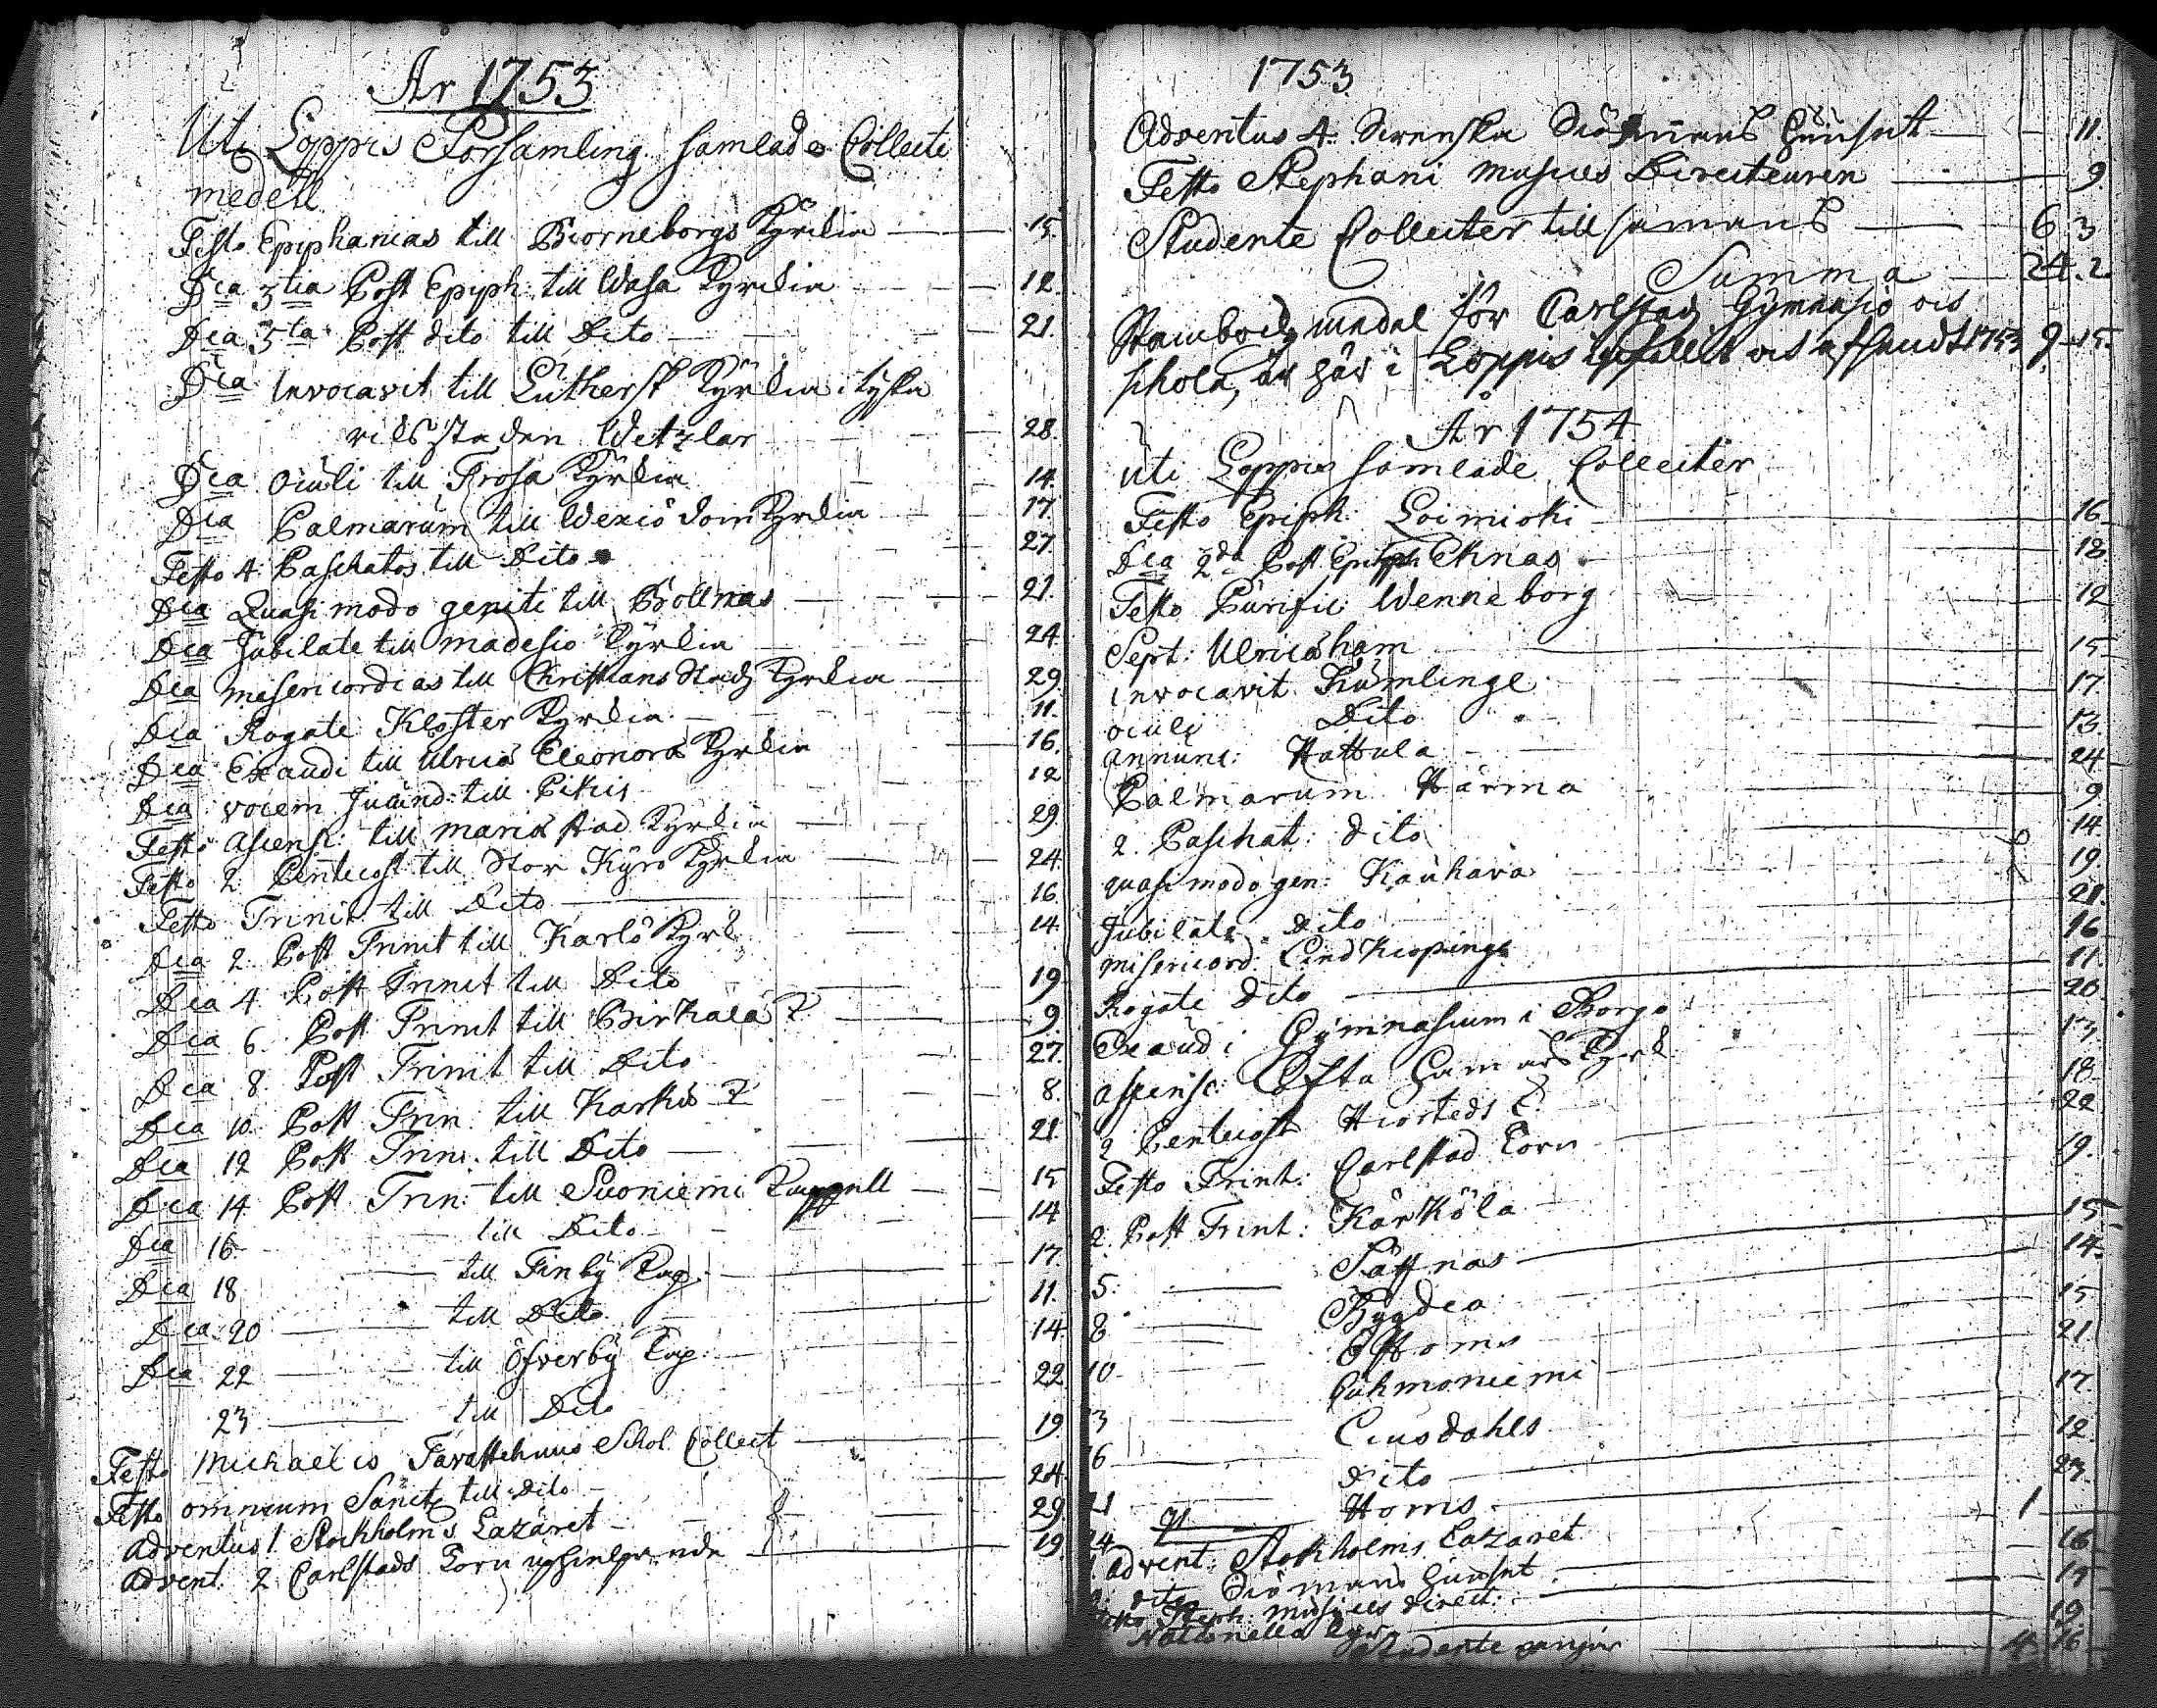 År 1753
Uti Loppis Församling samlade Collecte
medell
Festo Epiphanias till Biorneborgs Kyrckia 15.
Dca 3tia Post Epiph: till Wasa Kyrckia 12.
Dca 5ta Post dito till Dito 21.
Dca Invocavit till Luthersk Kyrckia i tyska
riksstaden Wetzlar 28.
Dca Oculi till Frosa Kyrckia 14.
Dca Palmarum till Wexiö dom Kyrckia 17.
Festo 4 Paschatos till Dito 27.
Dca Quasi modo geniti till Bollnas 21.
Dca Jubilate till madesio Kyrckia 24.
Dca misericordias till Christians Stadz Kyrckia 29.
Dca Rogate Kloster Kyrckia 11.
Dca Exaudi till Ulrica Eleonora Kyrckia 16.
Dca vocem Jucund: till Pikis 12
Festo ascensi: till mariæstad Kyrckia 29
Festo 2 Pentecost till Stor Kyro Kyrckia 24.
Festo Trinit till Dito 16
Dca 2 Post Trinit till Karlö Kyrk 14.
Dca 4 Post Trinit till Dito 19.
Dca 6 Post Trinit till Birkala K 9
Dca 8 Post Trinit till Dito 27.
Dca 10 Post Trin: till Karkis K 8.
Dca 12 Post Trin: till Dito 21.
Dca 14 Post Trin: till Suoniemi Kappell 15
Dca 16 till Dito 14
Dca 18 till Finby Kap. 17.
Dca 20 till Dito 11.
Dca 22 till Öfverby Kap. 14.
23 till Dito 22
Festo Michaelis Tavastehuus Schol. Collect 19
Festo omnium Sanct till Dito 24.
Adventus 1. Stockholms Lazaret 29.
Advent. 2 Carlstads Torn 19.
1753
Adventus 4 Swenska Siömans huuset 11.
Festo Stephani musices Directeuren 9.
Studente Collecter tillsamans 6 3
Summa 24. 2
för Carlstadz Gymnasio och
schola, är här i Loppis 1753 9 15.
År 1754
Uti Loppis samlade Collecter
Festo Epiph: Loimioki 16
Dca 2da Post Epiph Eknas 18
Festo Purific: Wenneborg 12
Sept: Ulricæham 15
invocavit Kumlinge 17
oculi Dito 13.
annunc: Hattula 24
Palmarum Härma 9
2. Paschat: dito 14.
quasi modo gen: Kauhava 19.
Jubilate dito 21.
misericord: Lindkiopings 16
Rogate dito 11.
Exaudi Gymnasium i Borgo 20
ascensi: Ofta Gamals Kyrk 13.
2 Pentecost Hiorteds K 18
Festo Trint: Carlstad Torn 22
2. Post Trint: Kärköla 19.
5. Säffnas 15
8 Bygdea 14.
10 Offoms 15
Puhmoniemi 21
3 Liusdahls 17.
6 dito 12
21 Homs 23.
24 1
1. advent: Stokholms Lazaret 16
2. dito Siömans huuset 15
Festo Steph: musices direct: 19
16